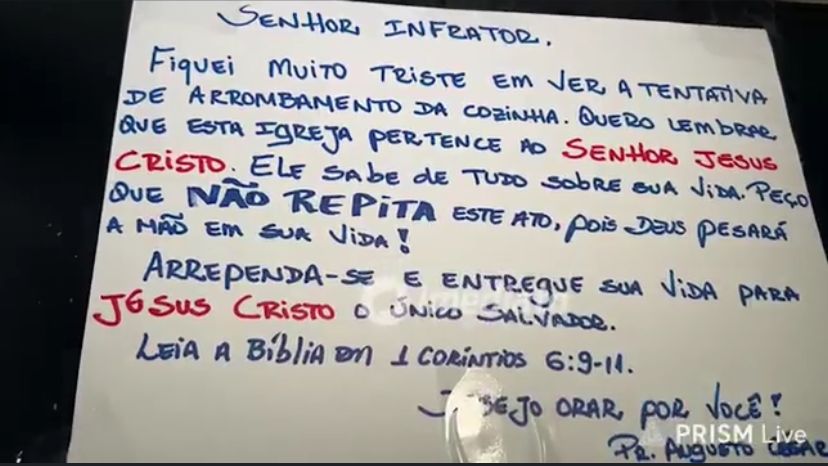 SENHOR INFRATOR.
FIQUEI MUITO TRISTE EM VER A TENTATIVA
DE ARROMBAMENTO DA COZINHA. QUERO LEMBRAR
QUE ESTA IGREJA PERTENCE AO SENHOR JESUS
CRISTO. ELE SABE DE TUDO SOBRE SUA VIDA. PEÇO
QUE NÃO REPITA ESTE ATO, POIS DEUS PESARÁ
A MÃO EM SUA VIDA!
ARREPENDA-SE E ENTREGUE SUA VIDA PARA
JESUS CRISTO O ÚNICO SALVADOR.
LEIA A BÍBLIA EM 1 CORÍNTIOS 6:9-11.
ORAR POR VOCÊ!
PRISM Live
PR. AUGUSTO CESAR